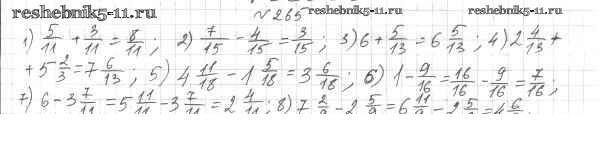 reshebnik5-11.ru
№265
reshebnik5-11.ru
1) 5/11 + 3/11 = 8/11; 2) 7/15 - 4/15 = 3/15; 3) 6 + 5/13 = 6 5/13; 4) 2 4/13 +
+ 5 2/3 = 7 6/13; 5) 4 11/18 - 1 5/18 = 3 6/18; 6) 1 - 9/16 = 16/16 - 9/16 = 7/16;
7) 6 - 3 7/11 = 5 11/11 - 3 7/11 = 2 4/11; 8) 7 2/9 - 2 5/9 = 6 11/9 - 2 5/9 = 4 6/9;